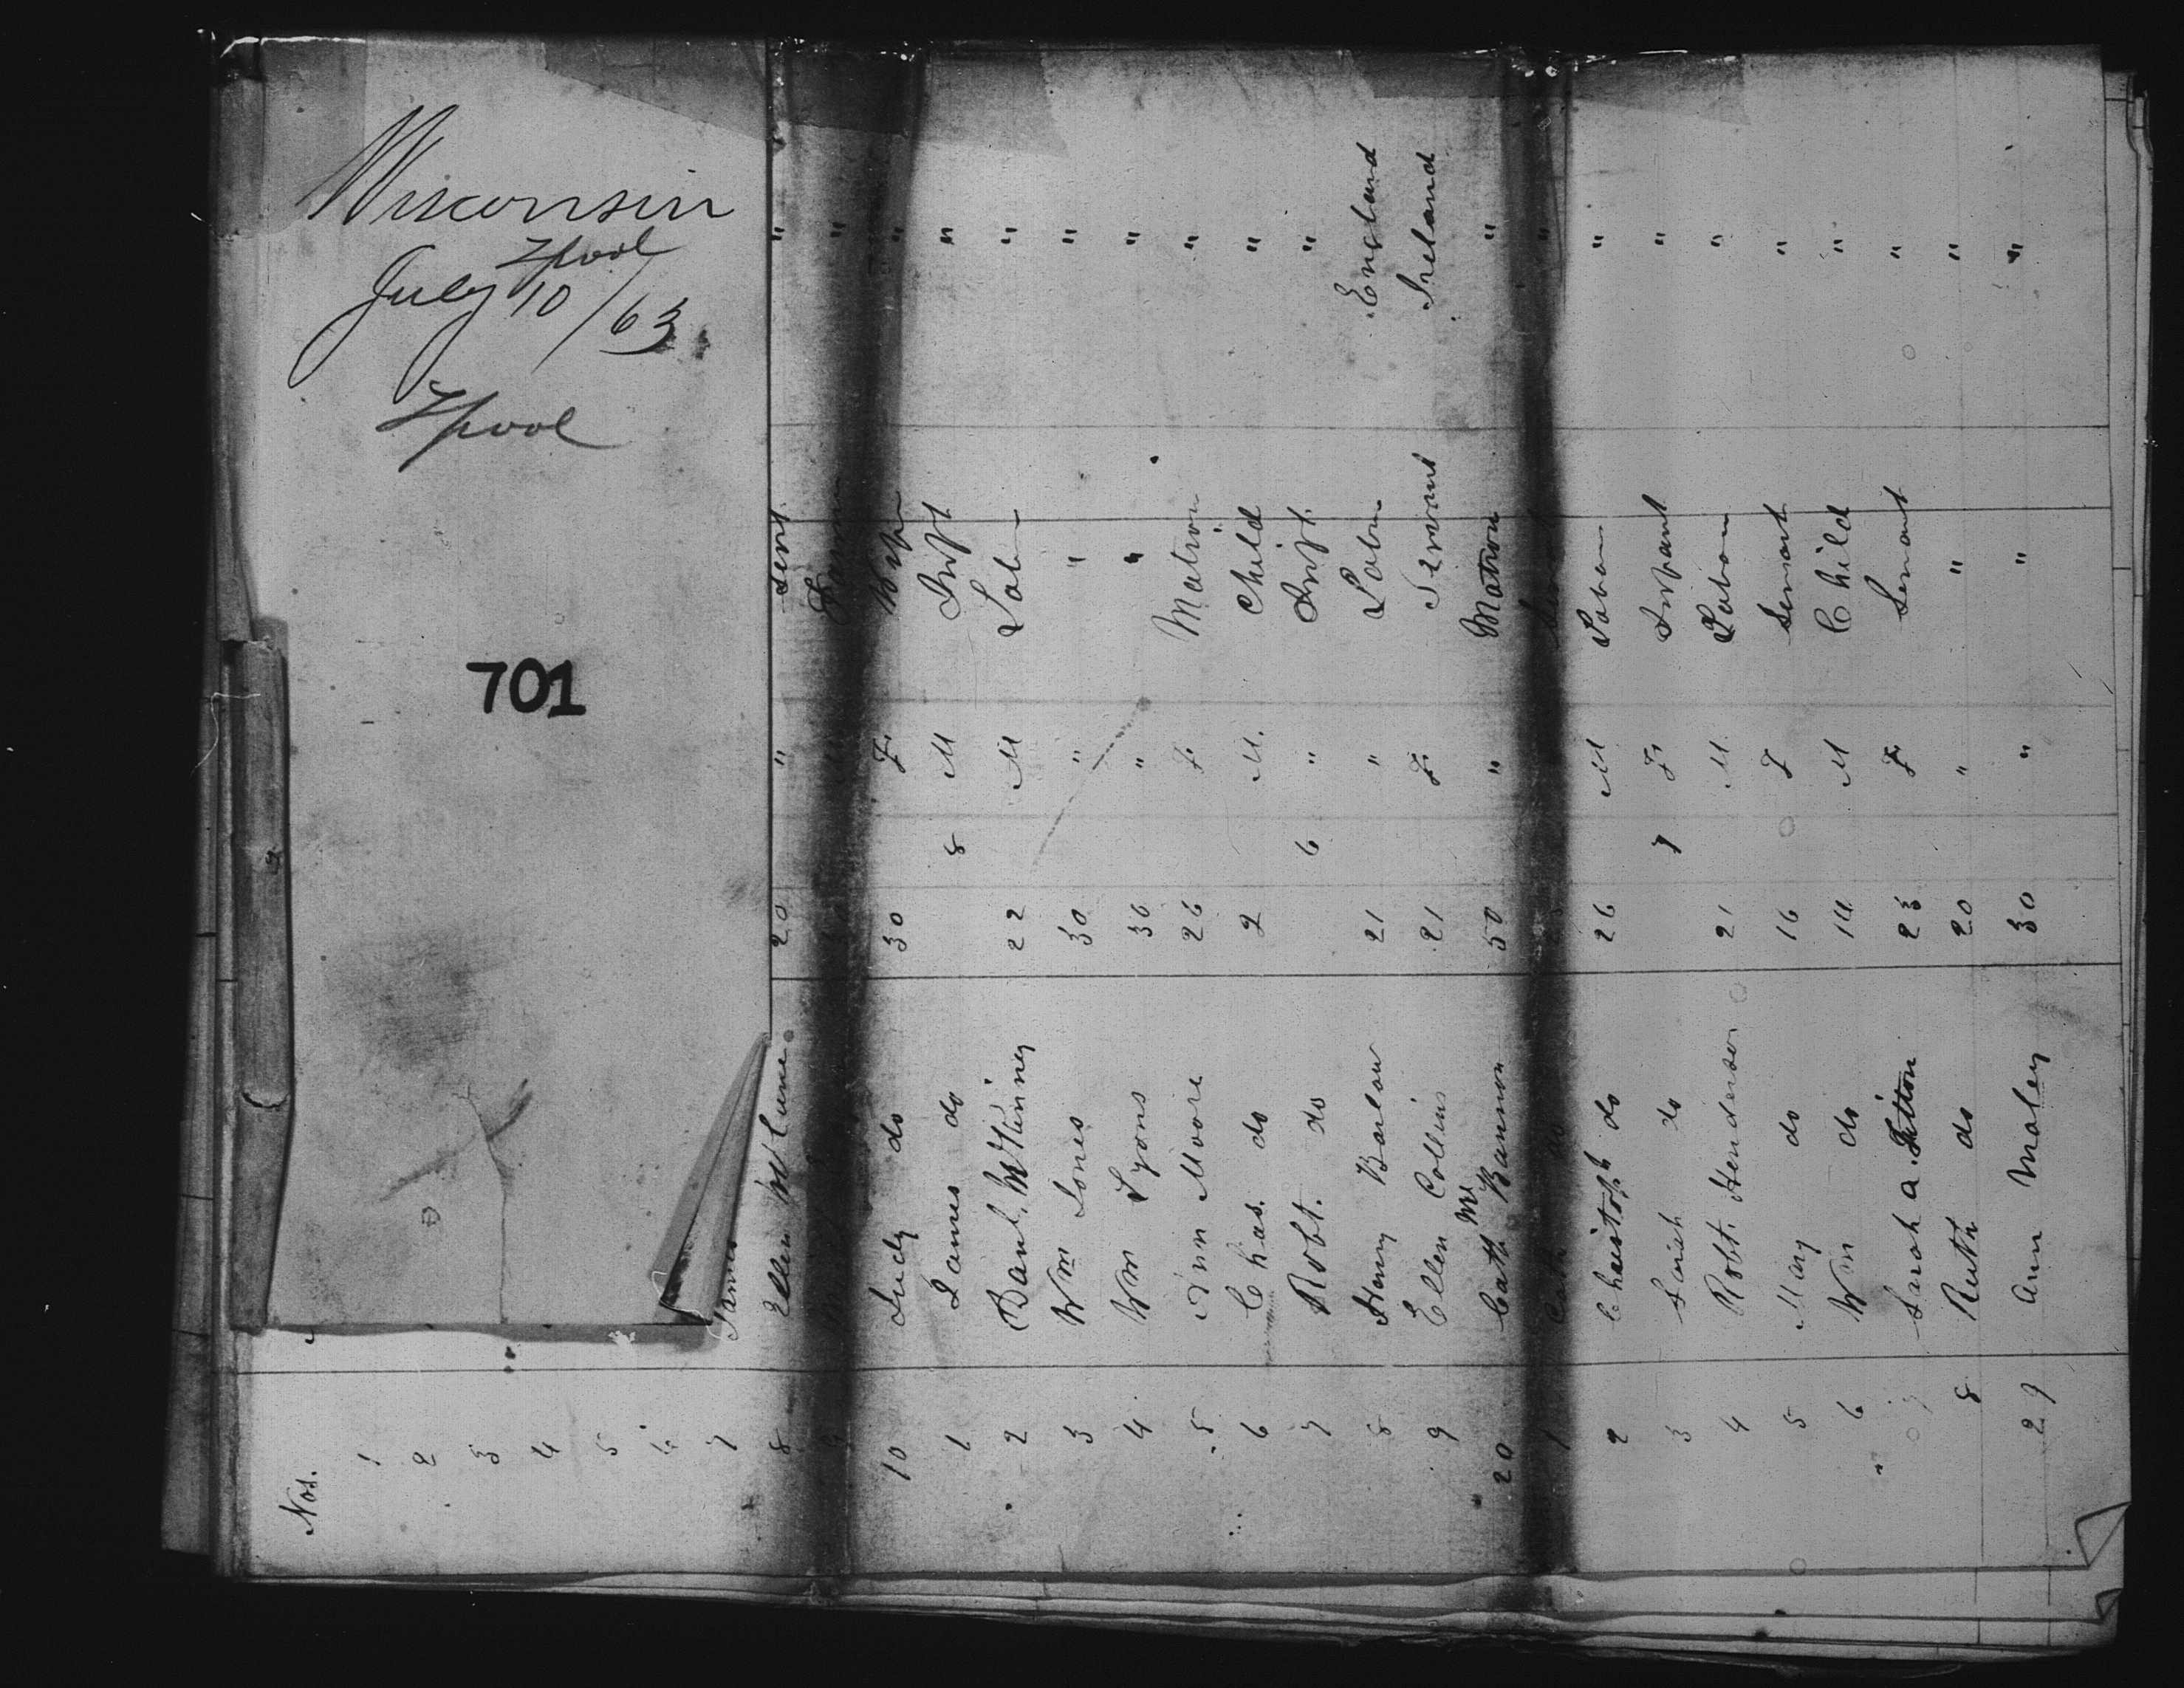 Wisconsin
Lpool
July 10/63
Lpool
701
Nos.
1
2
3
4
5
6
7 James
8 Ellen McCune 20 " Servt "
9 "
10 Judy do 30 F Wife "
1 James do 8 M Inft "
2 Danl. McKiney 22 M Labr "
3 Wm Jones 30 " " "
4 Wm Lyons 36 " " "
5 Ann Moore 26 F Matron "
6 Chas. do 2 M. Child "
7 Robt. do 6 " Inft. "
8 Henry Barlow 21 " Labr England
9 Ellen Collins 21 F Servant Ireland
20 Cath Mc Bannon 50 " Matron "
1 Cath do "
2 Christoph do 26 M Labour "
3 Sariah do 7 F Infant "
4 Robt. Henderson 21 M. Labour "
5 Mary do 16 F Servant "
6 Wm do 14 M Child "
7 Sarah A. Fitton 23 F Servant "
8 Ruth do 20 " " "
29 Ann Maley 30 " " "